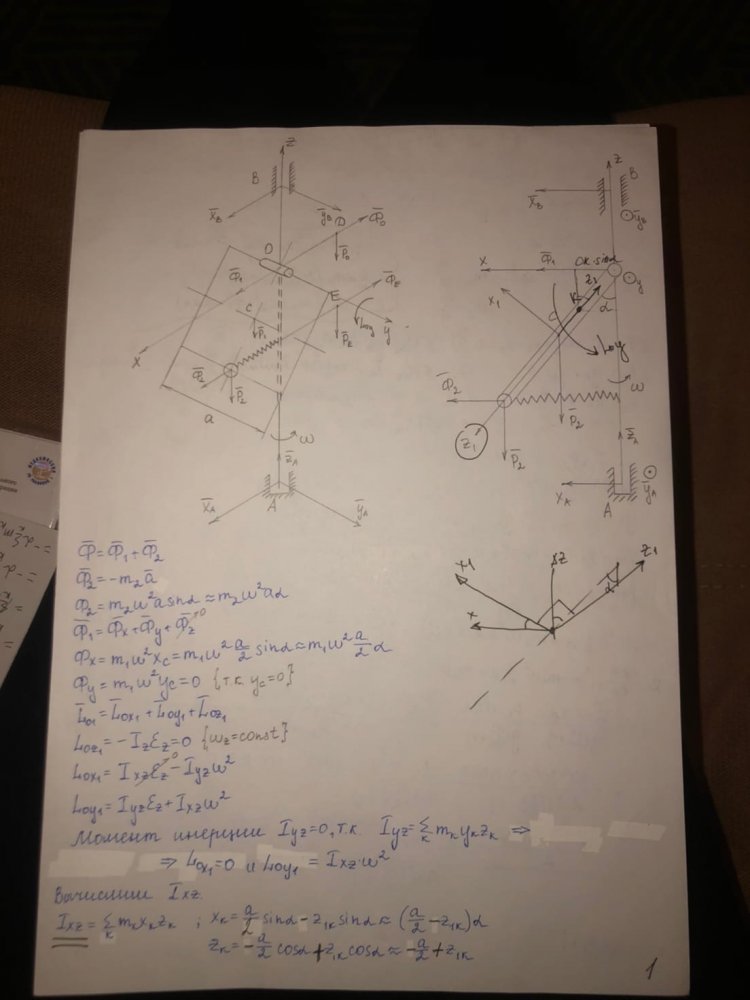 z
B
X̄_B
ȳ_B
D
Φ̄_D
P̄_D
O
Φ̄_1
E
Φ̄_E
C
P̄_1
L_oy
y
P̄_E
x
Φ̄_2
P̄_2
a
ω
z̄_A
A
X̄_A
ȳ_A
z
B
X̄_B
ȳ_B
x
Φ̄_1
OK·sinα
z_1
y
x_1
K
α
C
L_oy
Φ̄_2
ω
P̄_2
z_1
P̄_2
z̄_A
X_A
ȳ_A
A
x_1
z
z_1
x
α
Φ̄ = Φ̄_1 + Φ̄_2
Φ̄_2 = -m_2 ā
Φ_2 = m_2ω²a sinα ≈ m_2ω²aα
Φ̄_1 = Φ̄_x + Φ̄_y + Φ̄_z 0
Φ_x = m_1ω²x_C = m_1ω² a/2 sinα ≈ m_1ω² a/2 α
Φ_y = m_1ω²y_C = 0 {т.к. y_C = 0}
L̄_o1 = L̄_ox1 + L̄_oy1 + L̄_oz1
L_oz1 = -I_z ε_z = 0 {ω_z = const}
L_ox1 = I_xz ε_z 0 - I_yz ω²
L_oy1 = I_yz ε_z + I_xz ω²
Момент инерции I_yz = 0, т.к. I_yz = Σ_k m_k y_k z_k ⇒
⇒ L_ox1 = 0 и L_oy1 = I_xz·ω²
Вычислим I_xz
I_xz = Σ_k m_k x_k z_k ; x_k = a/2 sinα - z_1k sinα ≈ (a/2 - z_1k)α
z_k = -a/2 cosα + z_1k cosα ≈ -a/2 + z_1k
1